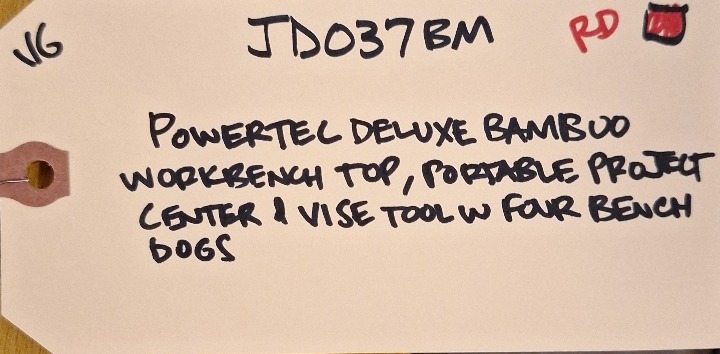 VG
JD037BM
RD
POWERTEC DELUXE BAMBUO
WORKBENCH TOP, PORTABLE PROJECT
CENTER & VISE TOOL W FOUR BENCH
DOGS